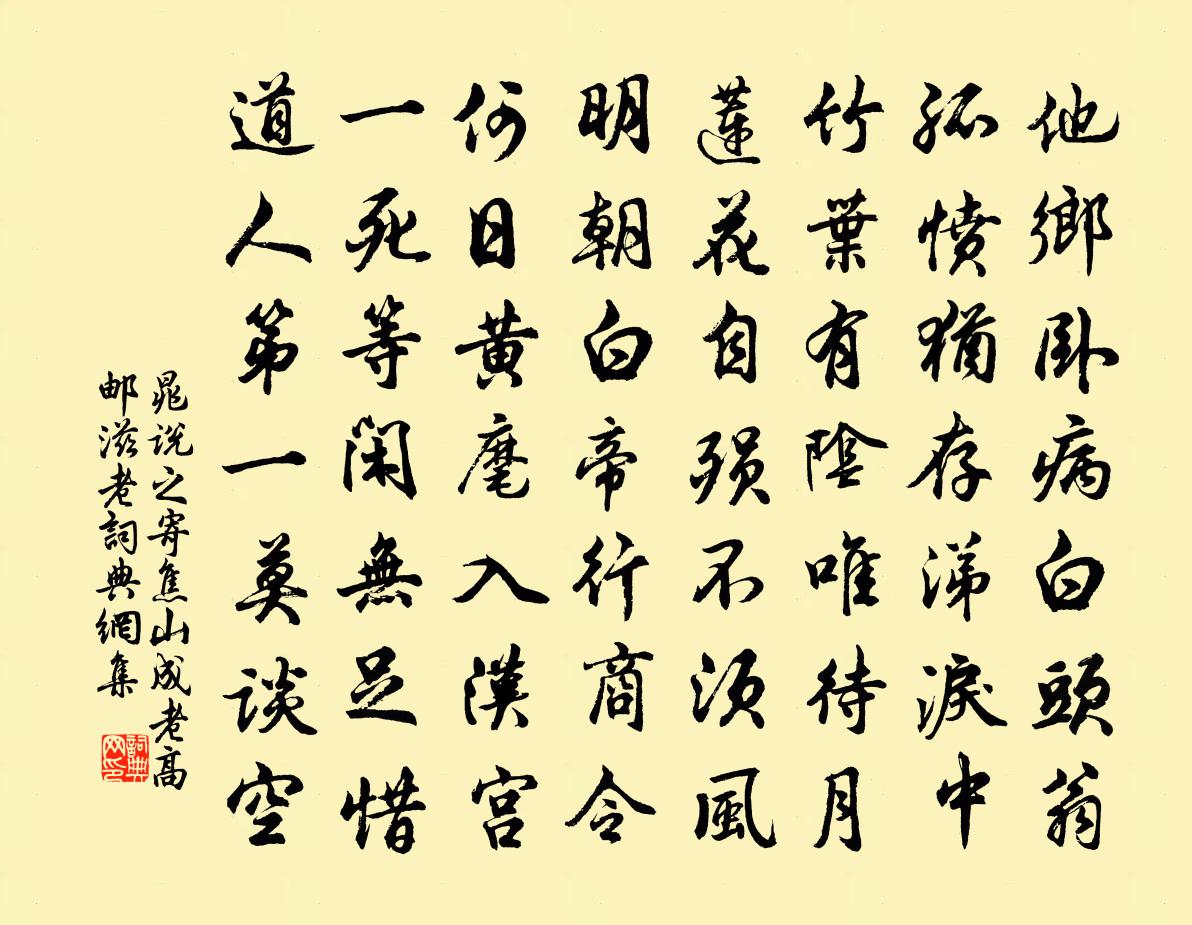 他鄉卧病白頭翁
孤憤猶存涕淚中
竹葉有陰唯待月
蓮花自殞不須風
明朝白帝行商令
何日黃麾入漢宮
一死等閑無足惜
道人第一莫談空
晁說之寄焦山成老高
邮滋老詞典網集
詞典網印